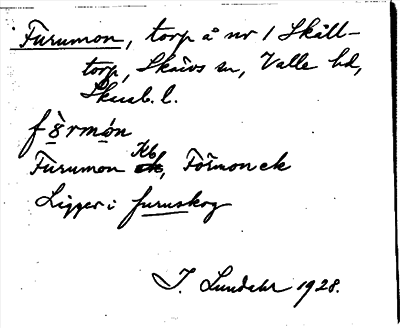 Furumon, torp å nr 1 Skåll-
torp, Skärvs sn, Valle hd,
Skarab. l.
Furumon Kb, Formon ek
Ligger i furuskog
J. Lundahl 1928.